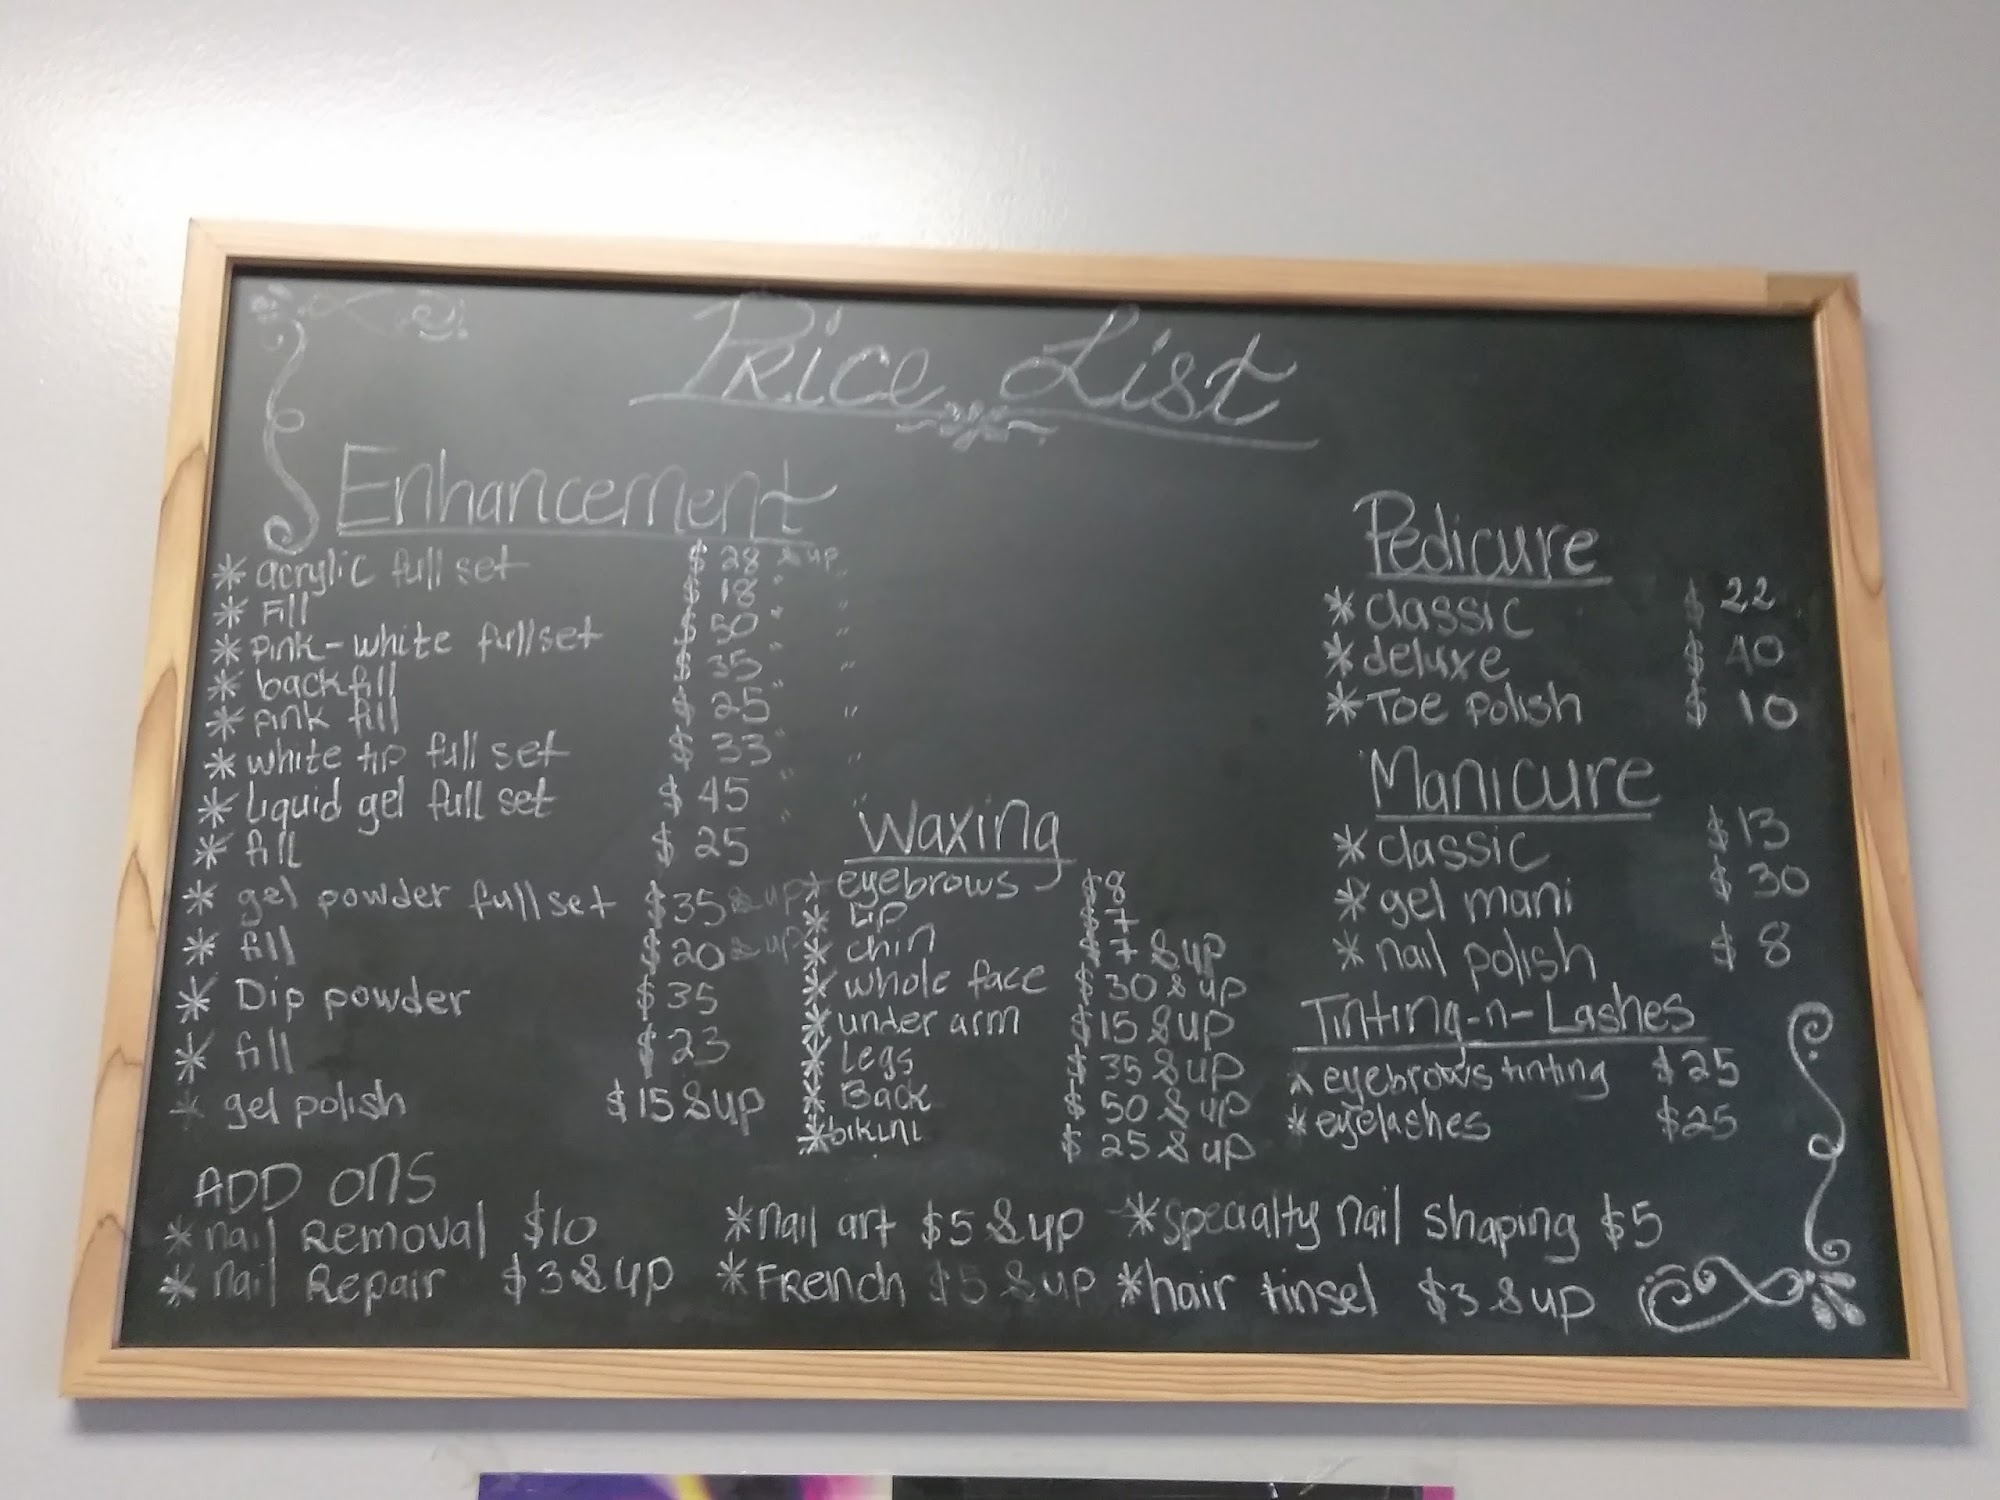 Price List
Enhancement
* acrylic full set $ 28 & up
* Fill $ 18 " "
* Pink-white full set $ 50 " "
* backfill $ 35 " "
* pink fill $ 25 " "
* white tip full set $ 33 " "
* Liquid gel full set $ 45 " "
* fill $ 25 " "
* gel powder full set $ 35 & up
* fill $ 20 & up
* Dip powder $ 35
* fill $ 23
* gel polish $ 15 & up
Waxing
* eyebrows $8
* Lip $7
* chin $7 & up
* whole face $ 30 & up
* under arm $ 15 & up
* Legs $ 35 & up
* Back $ 50 & up
* bikini $ 25 & up
Pedicure
* classic $ 22
* deluxe $ 40
* Toe polish $ 10
Manicure
* classic $ 13
* gel mani $ 30
* nail polish $ 8
Tinting-n-Lashes
* eyebrows tinting $25
* eyelashes $25
ADD ONS
* nail Removal $10 * nail art $5 & up * Specialty nail shaping $5
* nail Repair $3 & up * French $5 & up * hair tinsel $3 & up